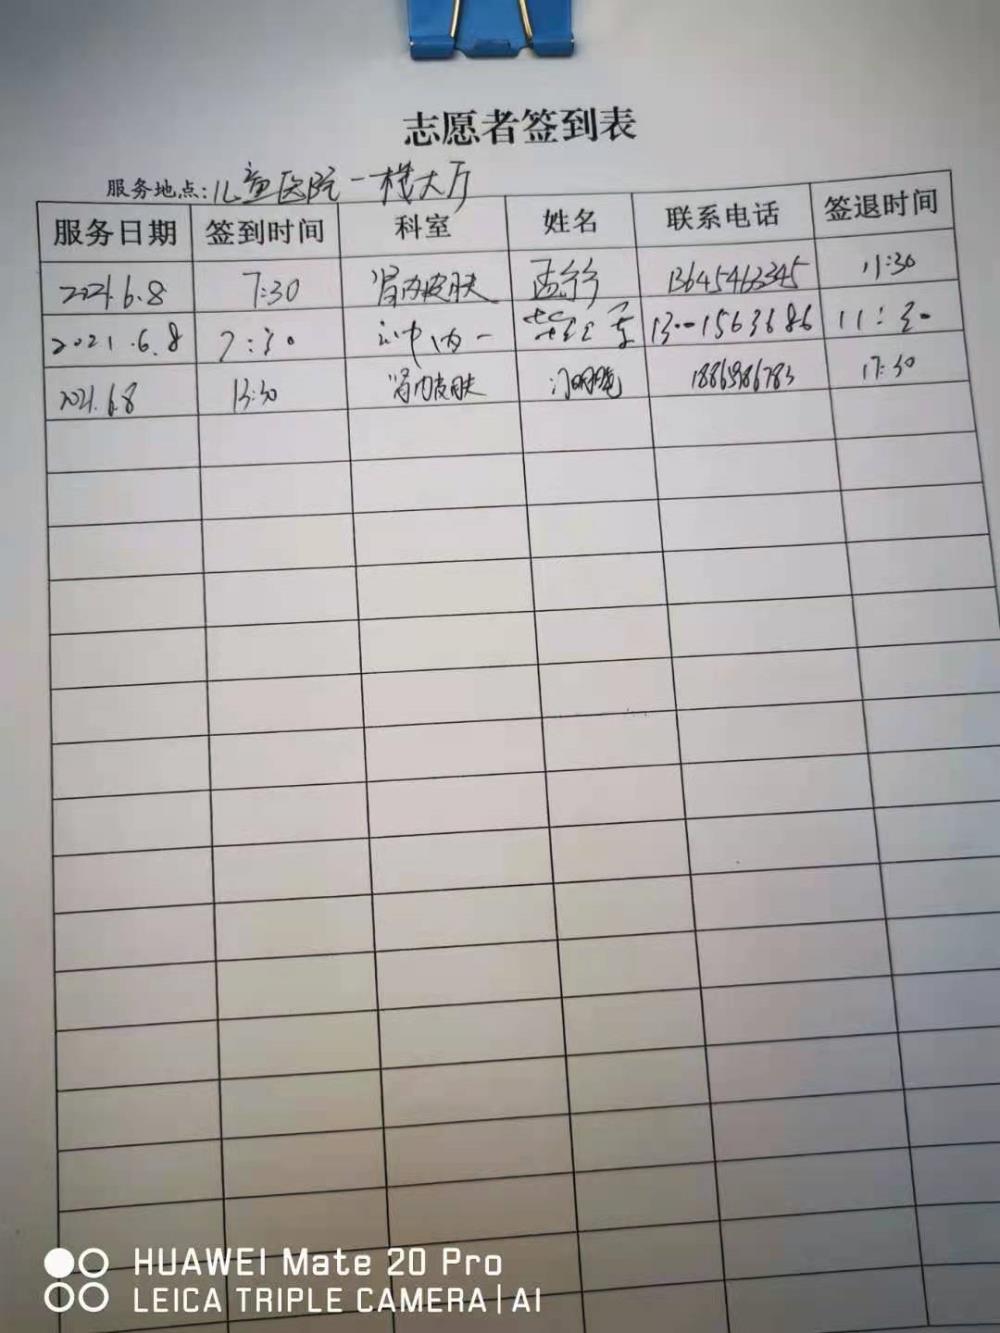 志愿者签到表
服务地点:儿童医院一楼大厅
服务日期 签到时间 科室 姓名 联系电话 签退时间
2021.6.8 7:30 肾内皮肤 孟 13645463345 11:30
2021.6.8 7:30 内一 13001563686 11:30
2021.6.8 13:30 肾内皮肤 17:30
HUAWEI Mate 20 Pro
LEICA TRIPLE CAMERA | AI